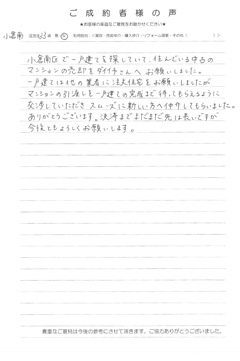 ご成約者様の声
★お客様の率直なご意見をお聞かせください★
小倉南
小倉南区で一戸建てを探していて、住んでいる中古の
マンションの売却をダイイチさんへお願いしました。
一戸建ては他の業者に注文住宅をお願いしましたが
マンションの引渡しを一戸建ての完成まで待ってもらえるように
交渉していただきスムーズに新しい方へ仲介してもらいました。
ありがとうございます。決済までまだまだ先は長いですが
今後ともよろしくお願いします。
貴重なご意見は今後の参考にさせて頂きます。ご協力ありがとうございました。